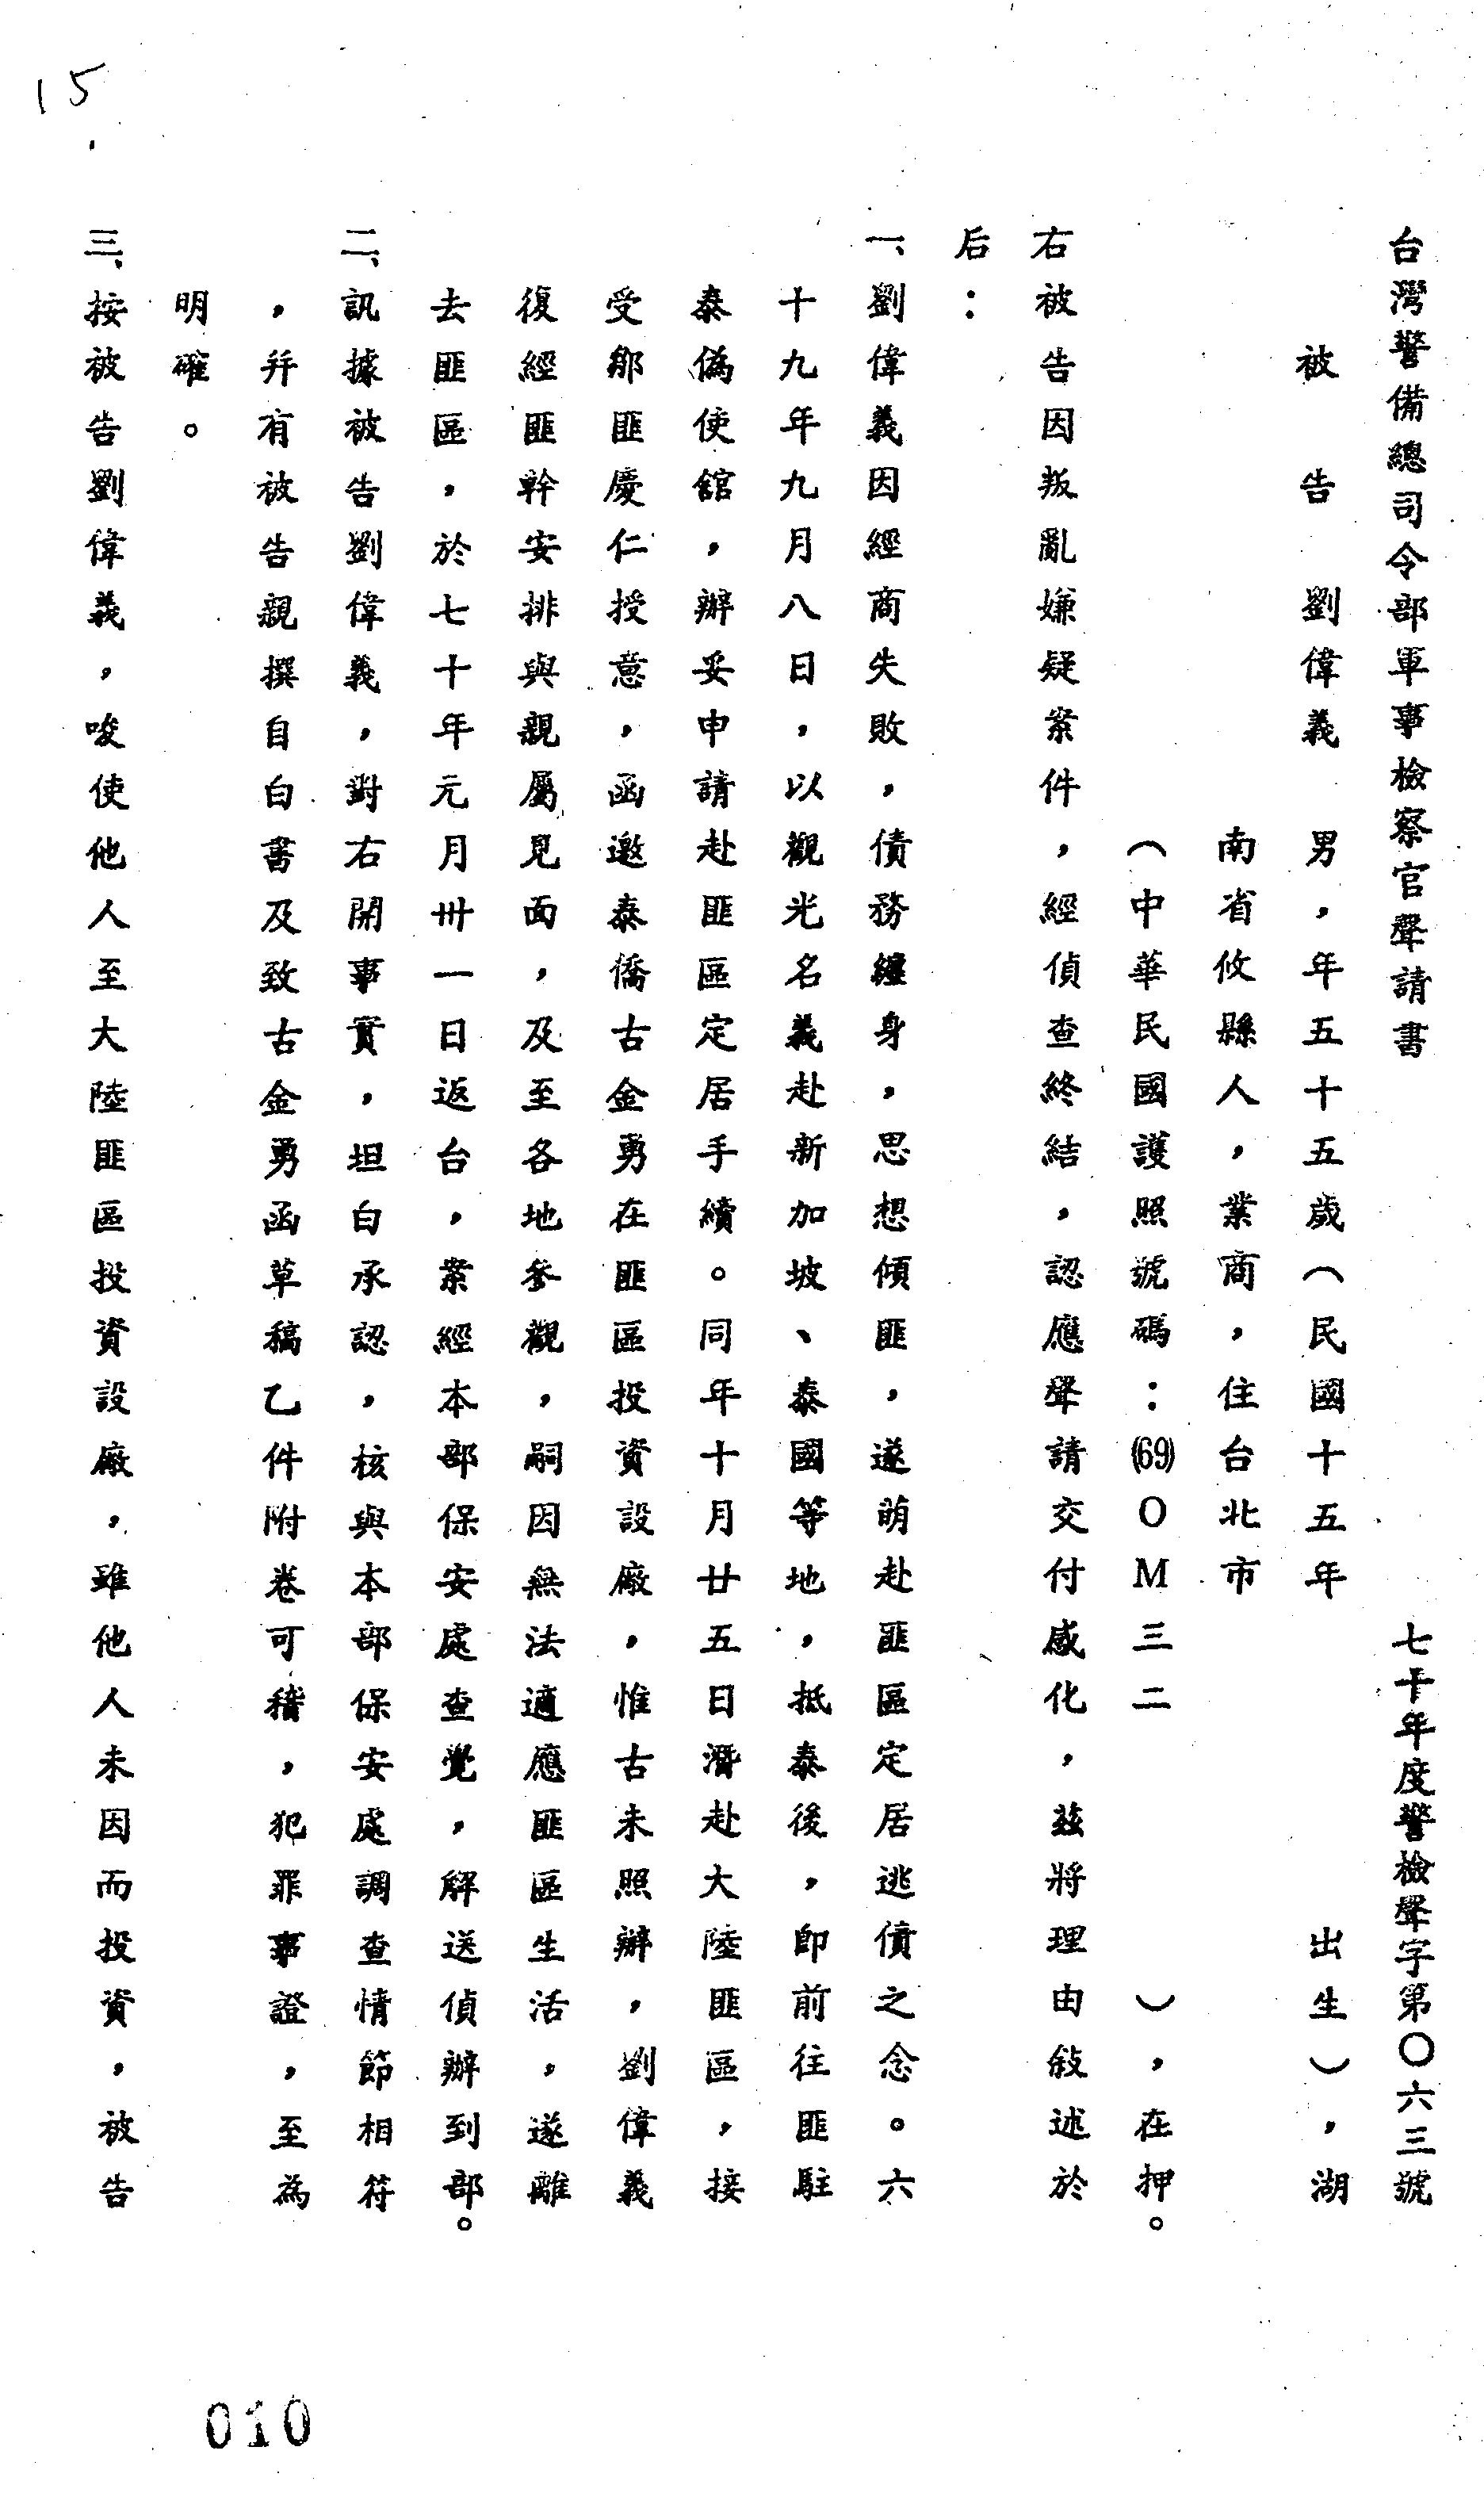 15.
台灣警備總司令部軍事檢察官聲請書　七十年度警檢聲字第○六三號
被告　劉偉義　男，年五十五歲（民國十五年　出生），湖
南省攸縣人，業商，住台北市
（中華民國護照號碼：(69)OM三二　），在押。
右被告因叛亂嫌疑案件，經偵查終結，認應聲請交付感化，茲將理由敍述於
后：
一、劉偉義因經商失敗，債務纏身，思想傾匪，遂萌赴匪區定居逃債之念。六
十九年九月八日，以觀光名義赴新加坡、泰國等地，抵泰後，即前往匪駐
泰偽使館，辦妥申請赴匪區定居手續。同年十月廿五日潛赴大陸匪區，接
受鄒匪慶仁授意，函邀泰僑古金勇在匪區投資設廠，惟古未照辦，劉偉義
復經匪幹安排與親屬見面，及至各地參觀，嗣因無法適應匪區生活，遂離
去匪區，於七十年元月卅一日返台，案經本部保安處查覺，解送偵辦到部。
二、訊據被告劉偉義，對右開事實，坦白承認，核與本部保安處調查情節相符
，并有被告親撰自白書及致古金勇函草稿乙件附卷可稽，犯罪事證，至為
明確。
三、按被告劉偉義，唆使他人至大陸匪區投資設廠，雖他人未因而投資，被告
010